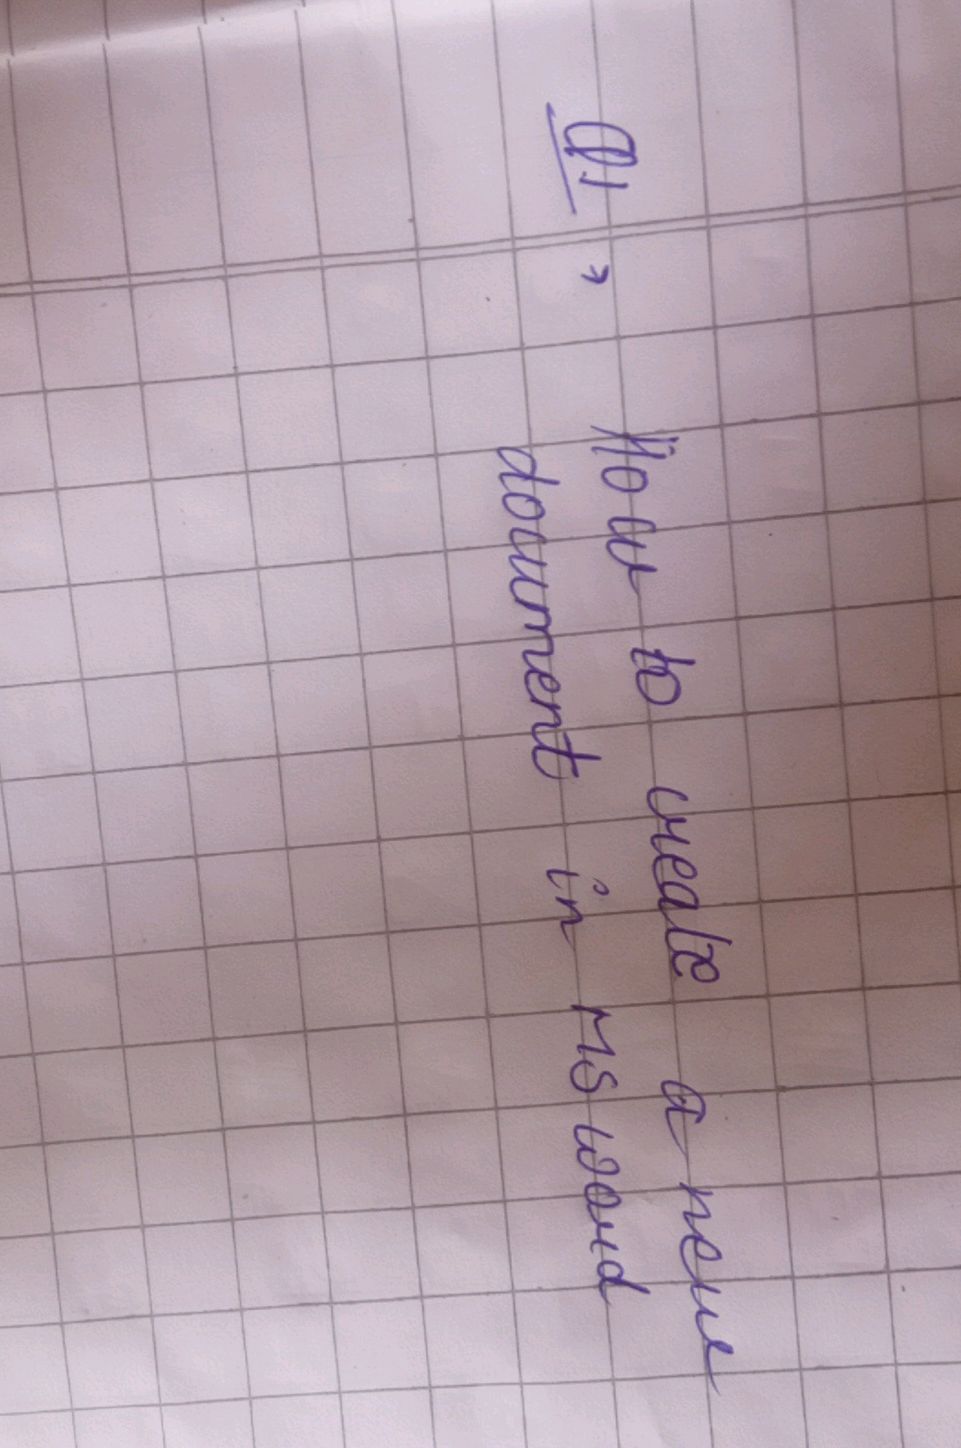 Q1, How to create a new
document in MS word